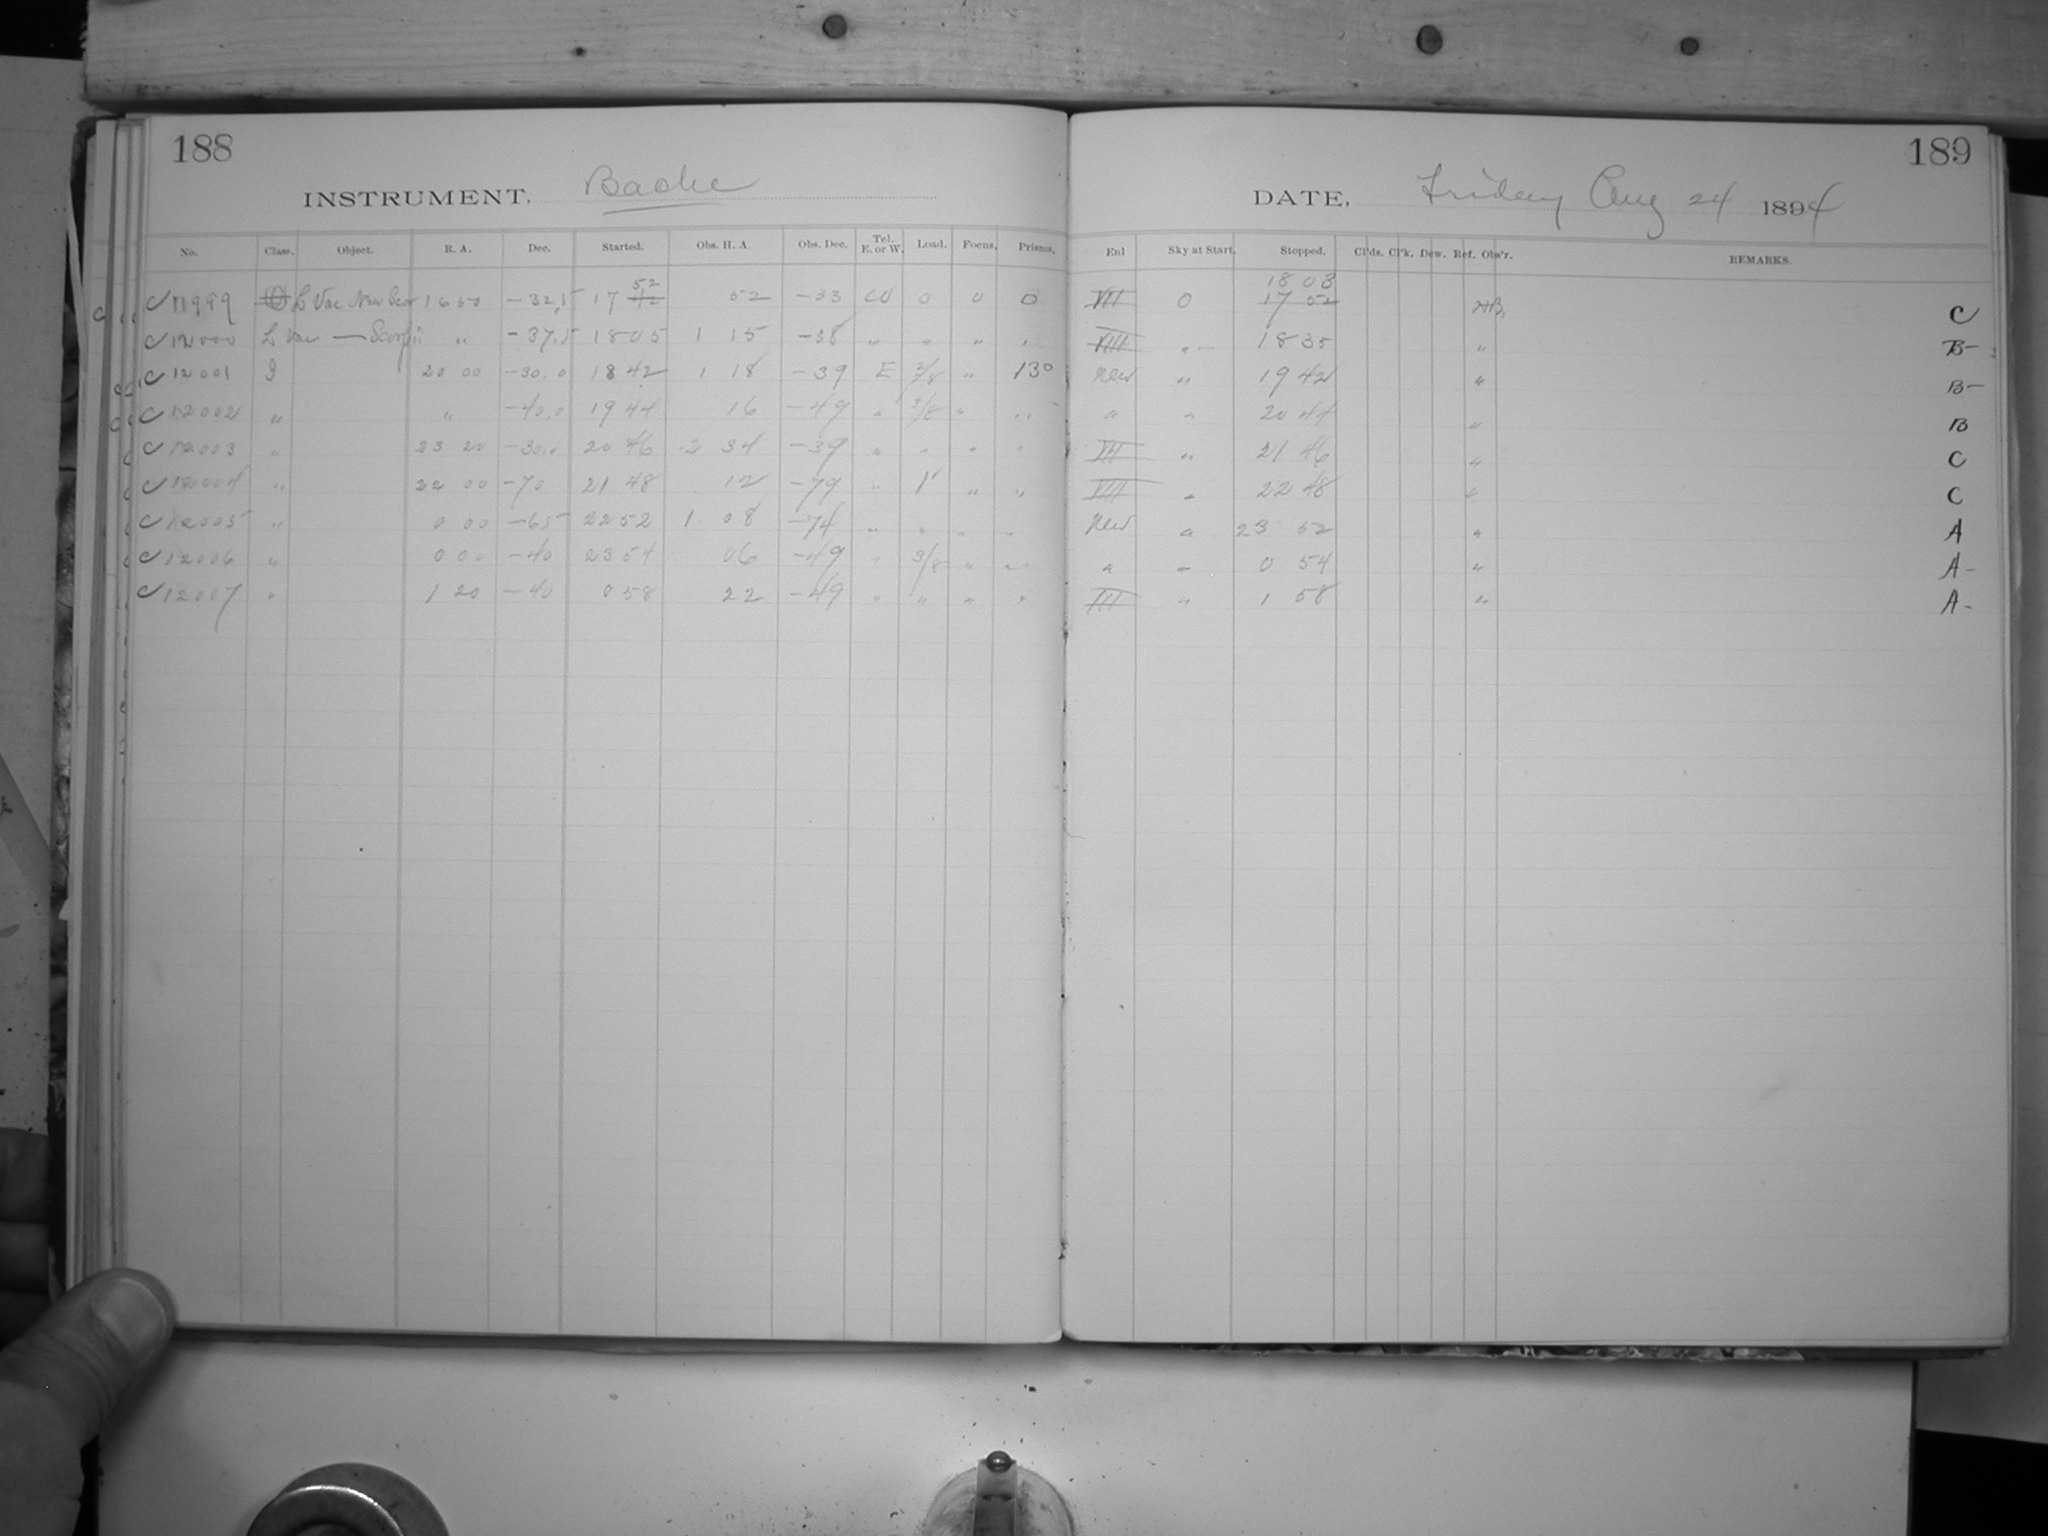 188
INSTRUMENT. Bache
No. Class. Object. R. A. Dec. Started. Obs. H. A. Obs. Dec. Tel. E. or W. Load. Focus. Prisms.
11999 L Var New Scor 16 50 -32.5 17 52 52 -33 W 0 0 0
12000 L Var — Scorpii " -37.5 18 05 1 15 -38 " " " "
12001 I 20 00 -30.0 18 42 1 18 -39 E 2/8 " 13°
12002 " " -40.0 19 44 16 -49 " 3/8 " "
12003 " 23 20 -30.0 20 46 -2 34 -39 " " " "
12004 " 22 00 -70 21 48 12 -79 " 1' " "
12005 " 0 00 -65 22 52 1 08 -74 " " " "
12006 " 0 00 -40 23 54 06 -49 " 3/8 " "
12007 " 1 20 -40 0 58 22 -49 " " " "
189
DATE, Friday Aug 24 1894
Enl Sky at Start. Stopped. Cl'ds. Cl'k. Dew. Ref. Obs'r. REMARKS
18 03
VII 0 17 52 C
VIII " 18 35 " B-
New " 19 42 " B-
" " 20 44 " B
VII " 21 46 " C
VIII " 22 48 " C
New " 23 52 " A
" " 0 54 " A-
III " 1 58 " A-